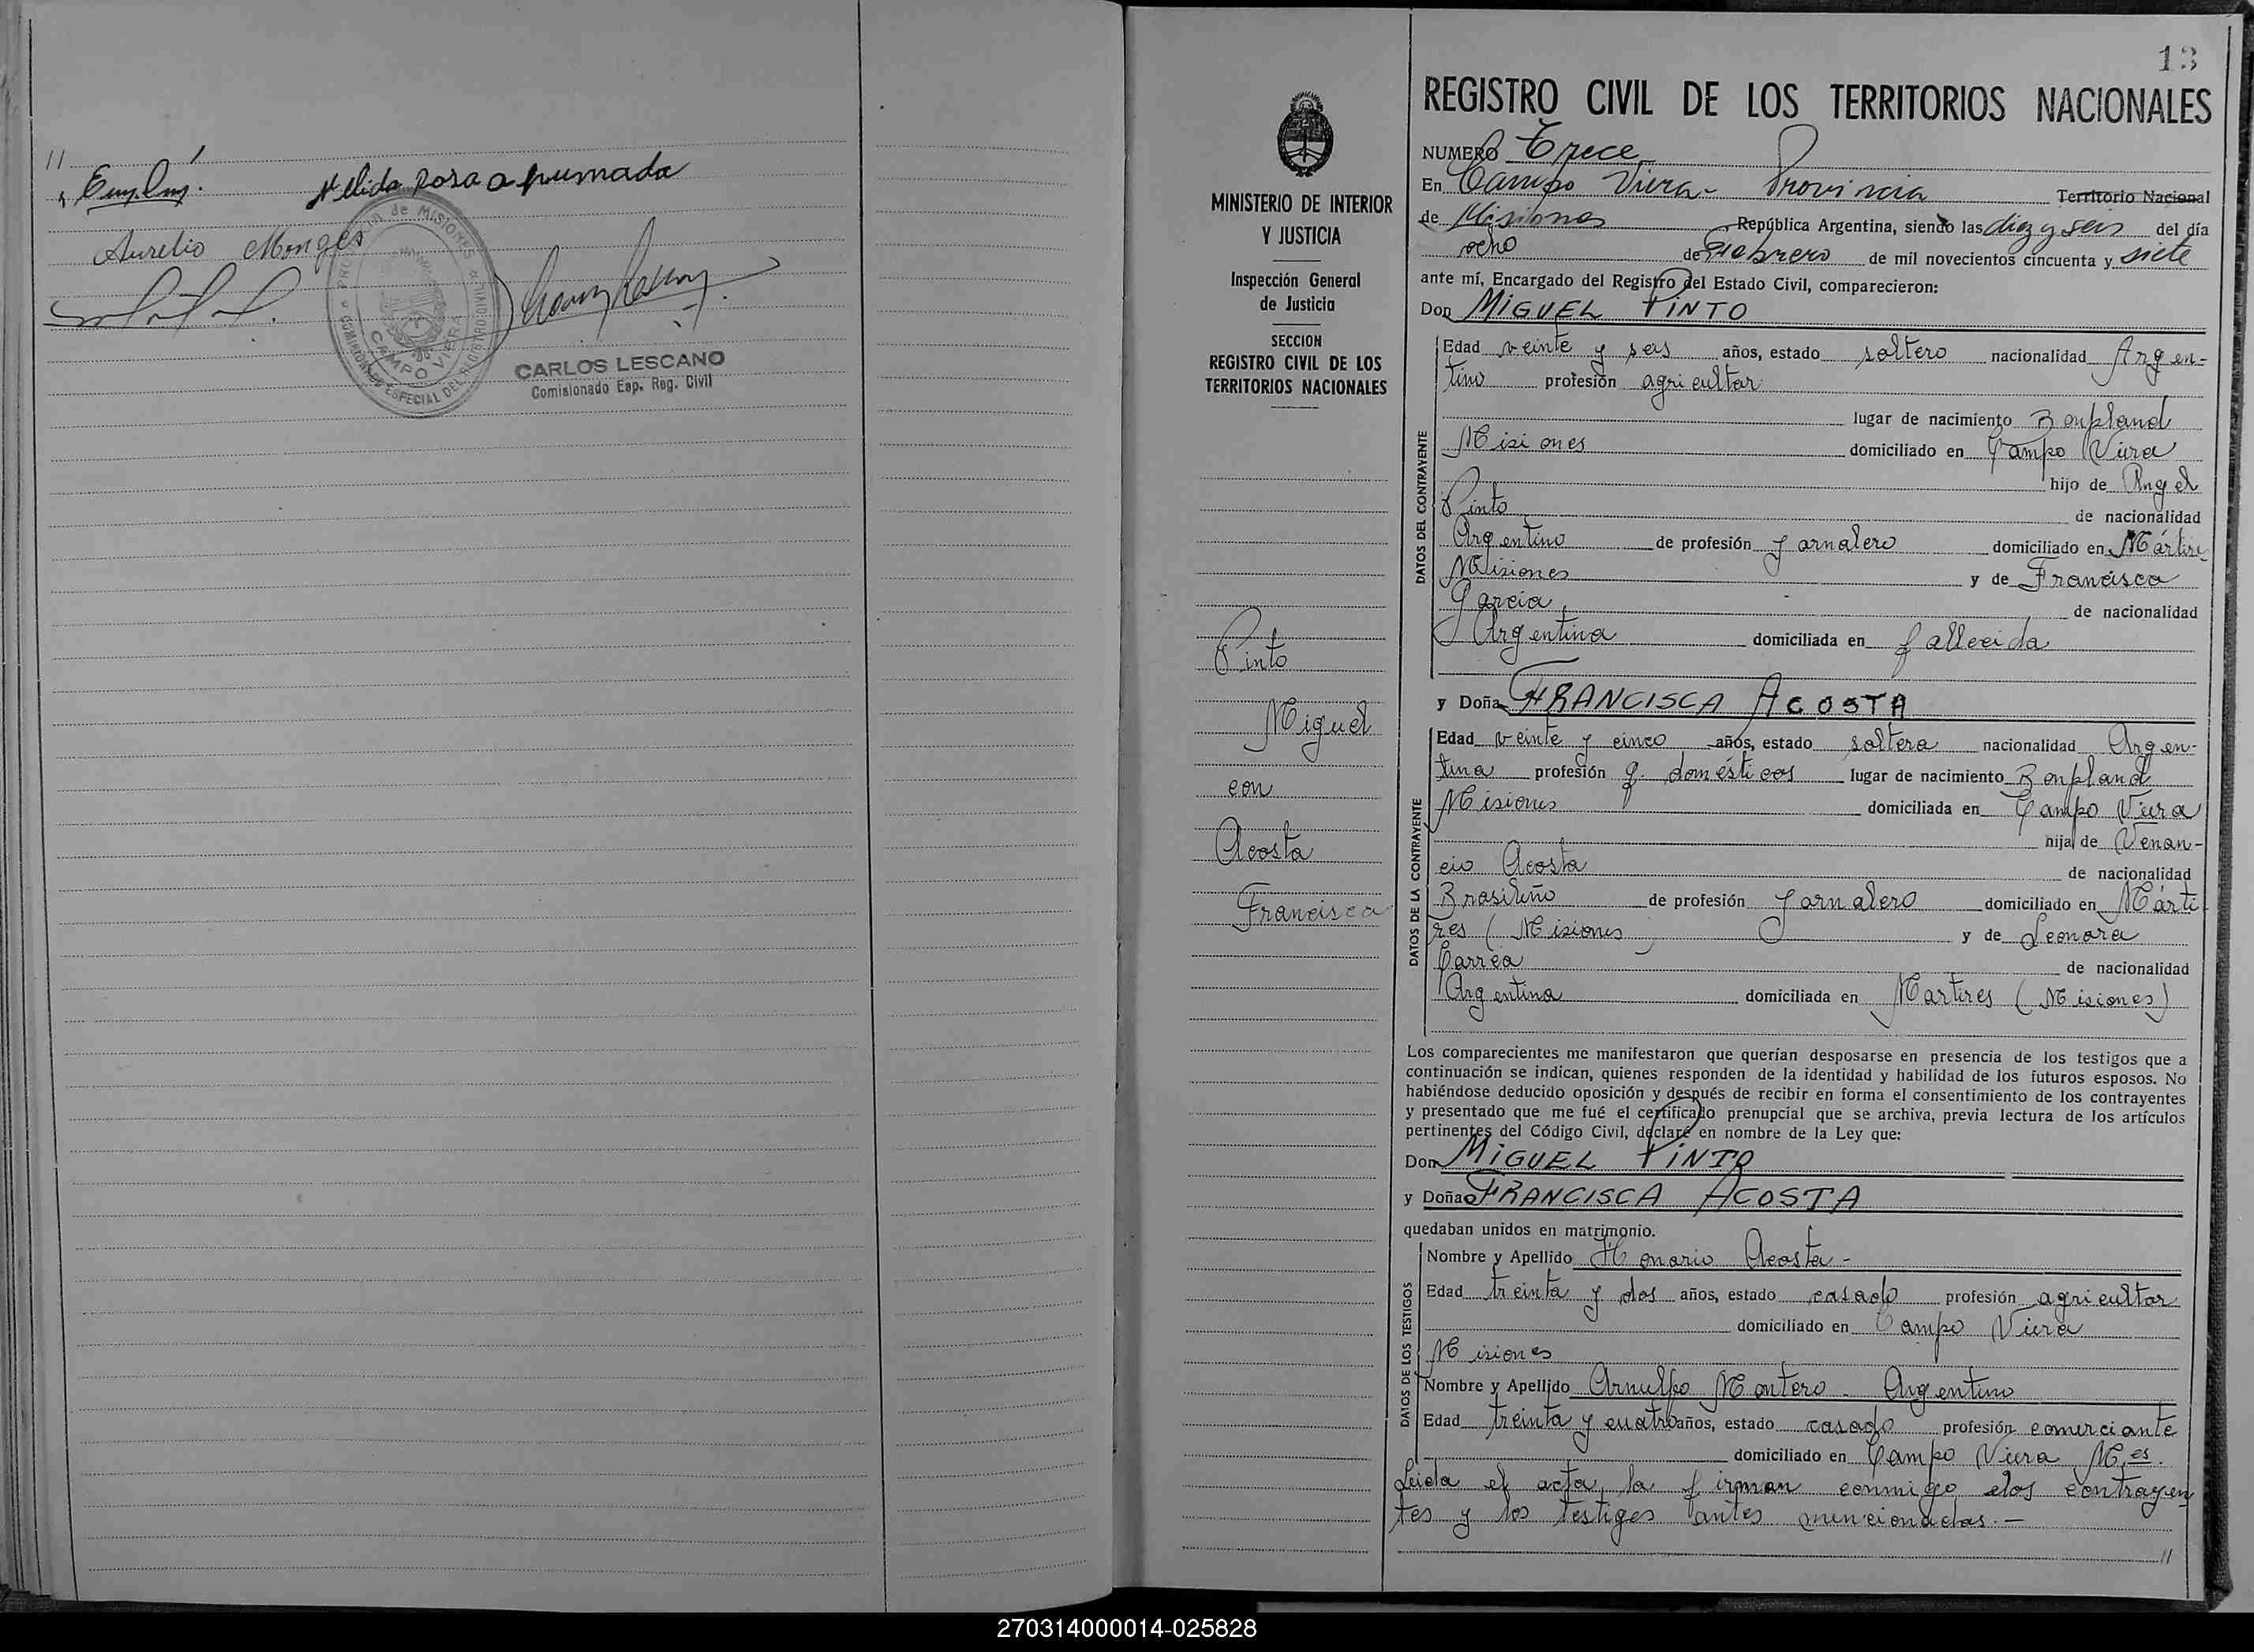 //
Nelida Rosa Apumada
Aurelio Monges
PROVINCIA de MISIONES
CAMPO VIERA
COMISIONADO ESPECIAL DEL REGISTRO CIVIL
CARLOS LESCANO
Comisionado Esp. Reg. Civil
13
MINISTERIO DE INTERIOR
Y JUSTICIA
Inspección General
de Justicia
SECCION
REGISTRO CIVIL DE LOS
TERRITORIOS NACIONALES
Pinto
Miguel
con
Acosta
Francisca
REGISTRO CIVIL DE LOS TERRITORIOS NACIONALES
NUMERO Trece
En Campo Viera - Provincia Territorio Nacional
de Misiones República Argentina, siendo las diez y seis del día
ocho de Febrero de mil novecientos cincuenta y siete
ante mí, Encargado del Registro del Estado Civil, comparecieron:
Don MIGUEL PINTO
DATOS DEL CONTRAYENTE
Edad veinte y seis años, estado soltero nacionalidad Argen-
tino profesión agricultor
lugar de nacimiento Bonpland
Misiones domiciliado en Campo Viera
hijo de Angel
Pinto de nacionalidad
Argentino de profesión Jornalero domiciliado en Mártires
Misiones y de Francisca
Garcia, de nacionalidad
Argentina domiciliada en fallecida
y Doña FRANCISCA ACOSTA
DATOS DE LA CONTRAYENTE
Edad veinte y cinco años, estado soltera nacionalidad Argen-
tina profesión q. domésticos lugar de nacimiento Bonpland
Misiones domiciliada en Campo Viera
hija de Venan-
cio Acosta de nacionalidad
Brasileño de profesión Jornalero domiciliado en Márti
res (Misiones) y de Leonora
Correa de nacionalidad
Argentina domiciliada en Martires (Misiones)
Los comparecientes me manifestaron que querían desposarse en presencia de los testigos que a
continuación se indican, quienes responden de la identidad y habilidad de los futuros esposos. No
habiéndose deducido oposición y después de recibir en forma el consentimiento de los contrayentes
y presentado que me fué el certificado prenupcial que se archiva, previa lectura de los artículos
pertinentes del Código Civil, declaré en nombre de la Ley que:
Don MIGUEL PINTO
y Doña FRANCISCA ACOSTA
quedaban unidos en matrimonio.
DATOS DE LOS TESTIGOS
Nombre y Apellido Honorio Acosta -
Edad treinta y dos años, estado casado profesión agricultor
domiciliado en Campo Viera
Misiones
Nombre y Apellido Arnulfo Montero - Argentino
Edad treinta y cuatro años, estado casado profesión comerciante
domiciliado en Campo Viera M.es.
Leida el acta, la firman conmigo los contrayen
tes y los testigos antes mencionados. -
//
270314000014-025828